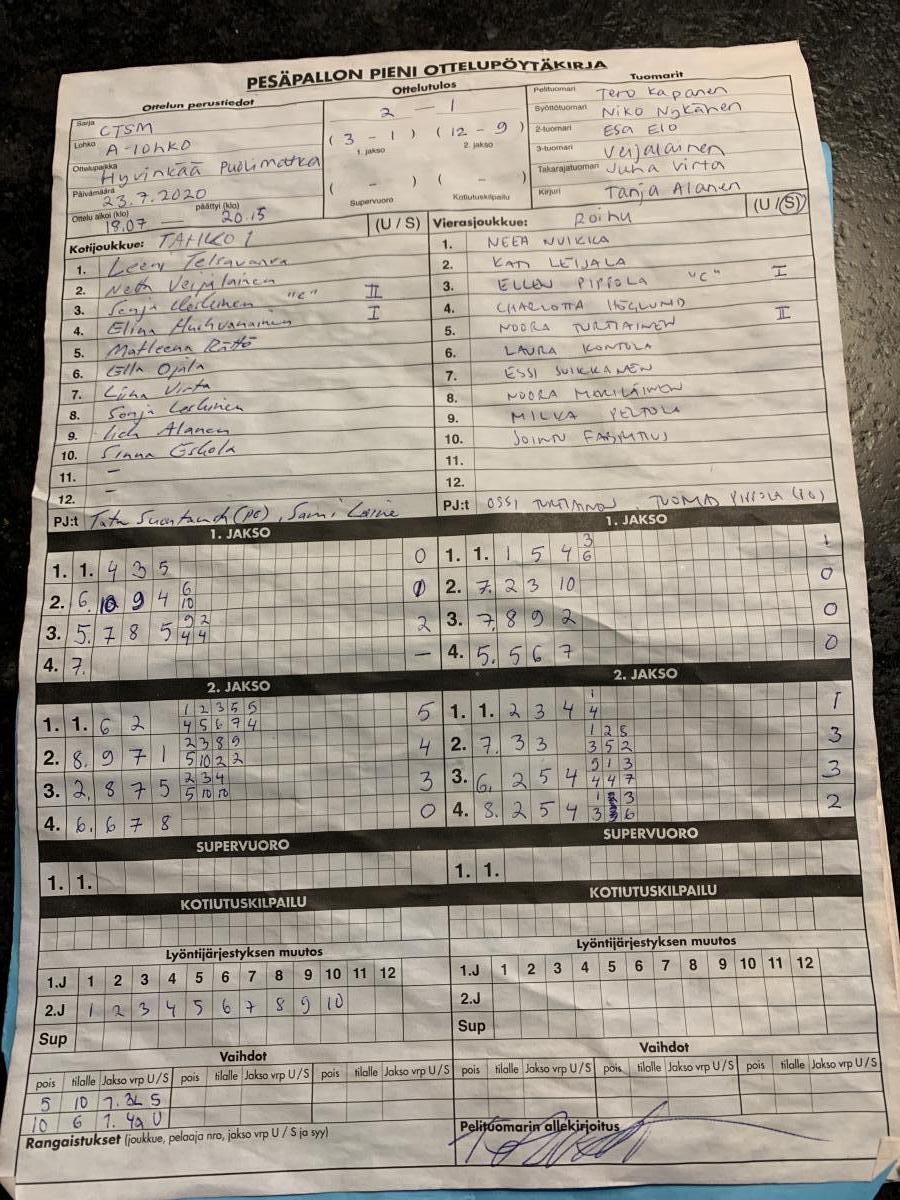 PESÄPALLON PIENI OTTELUPÖYTÄKIRJA
Ottelun perustiedot
Sarja CTSM
Lohko A-lohko
Ottelupaikka Hyvinkää Puolimatka
Päivämäärä 23.7.2020
Ottelu alkoi (klo) 18.07 — päättyi (klo) 20.15
Ottelutulos
2 — 1
( 3 - 1 ) ( 12 - 9 )
1. jakso 2. jakso
( - ) ( - )
Supervuoro Kotiutuskilpailu
Tuomarit
Pelituomari Tero Kapanen
Syöttötuomari Niko Nykänen
2-tuomari Esa Elo
3-tuomari
Takarajatuomari Juha Virta
Kirjuri Tanja Alanen
Kotijoukkue: TAHKO 1 (U / S)
1. Leeni
2. Neta Veijalainen
3. Sonja "C" II
4. Elina I
5. Matleena Rättö
6. Ella Ojala
7. Liina Virta
8. Sonja
9. Alanen
10. Sinna Eskola
11. –
12. –
PJ:t (PE), Sami Laine
Vierasjoukkue: ROIHU (U / S)
1. NEEA NUIKKA
2. KATI LEIJALA
3. ELLEN PIPPOLA "C" I
4. CHARLOTTA HÖGLUND
5. NOORA TURTIAINEN II
6. LAURA KONTULA
7. ESSI SUIKKANEN
8. NOORA
9. MILKA PELTOLA
10.
11.
12.
PJ:t OSSI TURTIAINEN TUOMAS PIPPOLA
1. JAKSO
1. 1. 4 3 5 0
2. 6. 10 9 4 6 0
10
3. 5. 7 8 5 9 2 2
4 4
4. 7. –
1. JAKSO
1. 1. 1 5 4 3 1
6
2. 7. 2 3 10 0
3. 7. 8 9 2 0
4. 5. 5 6 7 0
2. JAKSO
1. 1. 6 2 1 2 3 5 5 5
4 5 6 7 4
2. 8. 9 7 1 2 3 8 9 4
5 10 2 2
3. 2. 8 7 5 2 3 4 3
5 10 10
4. 6. 6 7 8 0
2. JAKSO
1. 1. 2 3 4 1 1
4
2. 7. 3 3 1 2 5 3
3 5 2
3. 6. 2 5 4 9 1 3 3
4 4 7
4. 8. 2 5 4 1 3 2
3 6
SUPERVUORO
1. 1.
SUPERVUORO
1. 1.
KOTIUTUSKILPAILU
KOTIUTUSKILPAILU
Lyöntijärjestyksen muutos
1.J 1 2 3 4 5 6 7 8 9 10 11 12
2.J 1 2 3 4 5 6 7 8 9 10
Sup
Lyöntijärjestyksen muutos
1.J 1 2 3 4 5 6 7 8 9 10 11 12
2.J
Sup
Vaihdot
pois tilalle Jakso vrp U / S pois tilalle Jakso vrp U / S pois tilalle Jakso vrp U / S
5 10 1. 3L S
10 6 1. 4a U
Vaihdot
pois tilalle Jakso vrp U / S pois tilalle Jakso vrp U / S pois tilalle Jakso vrp U / S
Rangaistukset (joukkue, pelaaja nro, jakso vrp U / S ja syy)
Pelituomarin allekirjoitus